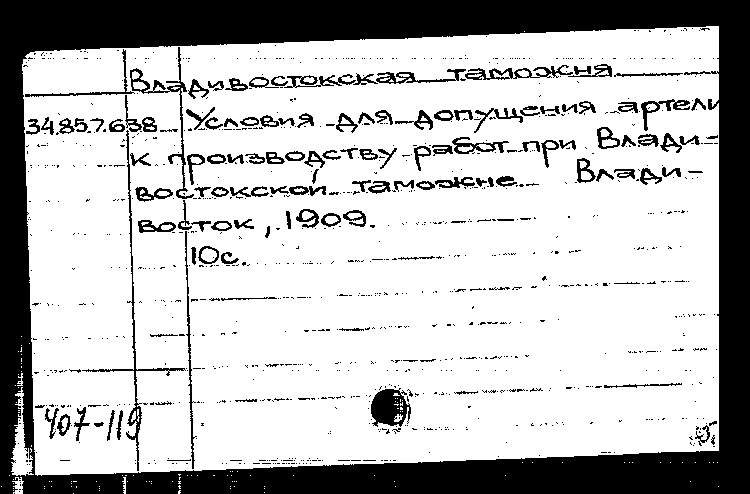 Владивостокская таможня
34.85.7.638 Условия для допущения артели
к производству работ при Влади-
востокской таможне. Влади-
восток, 1909.
10с.
407-119